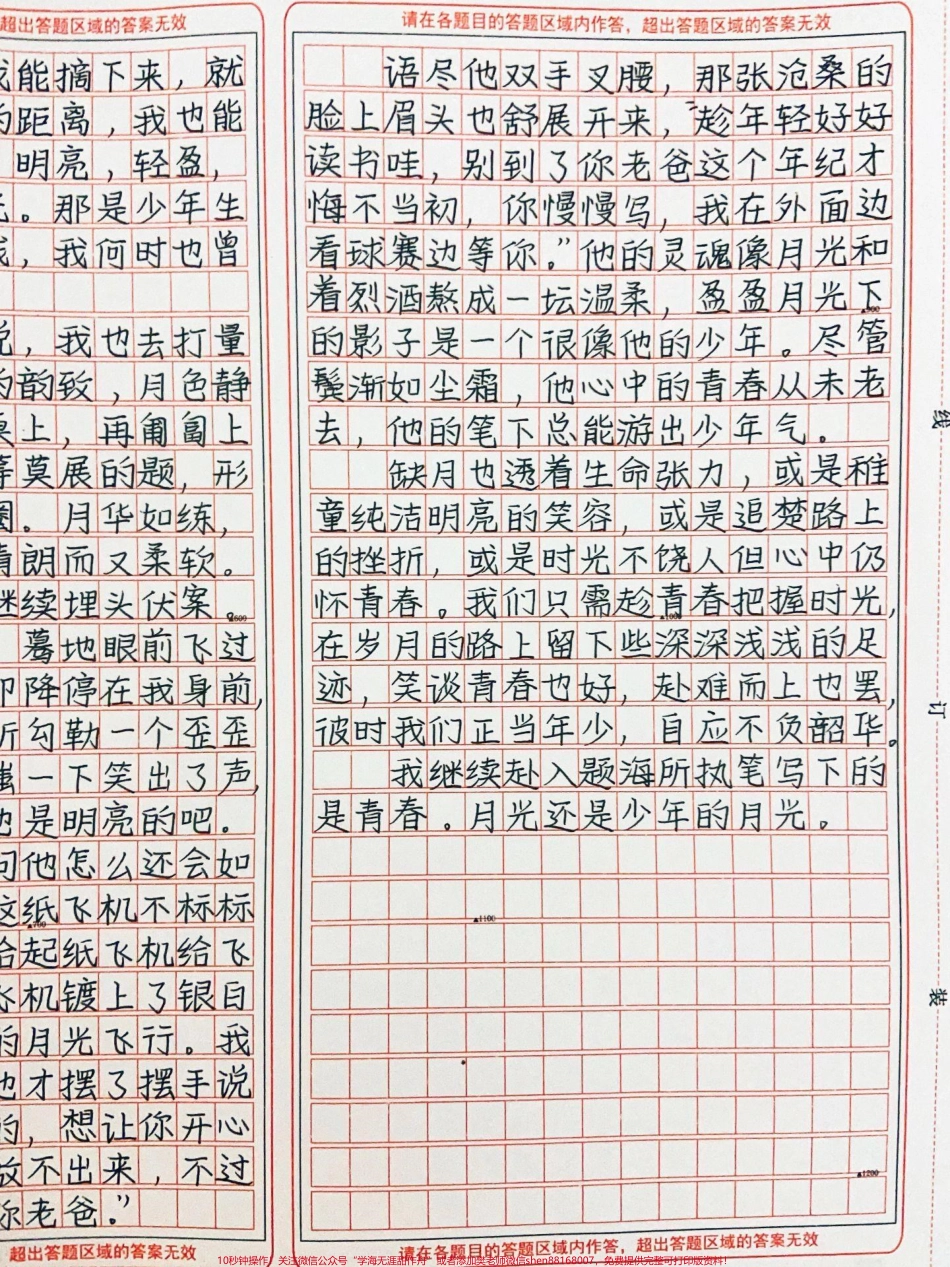 超出答题区域的答案无效
能摘下来，就
的距离，我也能
明亮，轻盈，
。那是少年生
，我何时也曾
说，我也去打量
的韵致，月色静
桌上，再阖阖上
等莫展的题，形
圈。月华如练，
清朗而又柔软。
继续埋头伏案。
▲600
蓦地眼前飞过
即降停在我身前，
所勾勒一个歪歪
嗤一下笑出了声，
也是明亮的吧。
问他怎么还会如
这纸飞机不标标
▲700
给起纸飞机给飞
飞机镀上了银白
的月光飞行。我
他才摆了摆手说
的，想让你开心
放不出来，不过
你老爸。”
超出答题区域的答案无效
请在各题目的答题区域内作答，超出答题区域的答案无效
语尽他双手叉腰，那张沧桑的
脸上眉头也舒展开来，“趁年轻好好
读书哇，别到了你老爸这个年纪才
悔不当初，你慢慢写，我在外面边
看球赛边等你。”他的灵魂像月光和
着烈酒熬成一坛温柔，盈盈月光下
▲900
的影子是一个很像他的少年。尽管
鬓渐如尘霜，他心中的青春从未老
去，他的笔下总能游出少年气。
缺月也透着生命张力，或是稚
童纯洁明亮的笑容，或是追楚路上
的挫折，或是时光不饶人但心中仍
怀青春。我们只需趁青春把握时光，
▲1000
在岁月的路上留下些深深浅浅的足
迹，笑谈青春也好，赴难而上也罢，
彼时我们正当年少，自应不负韶华。
我继续赴入题海所执笔写下的
是青春。月光还是少年的月光。
▲1100
▲1200
请在各题目的答题区域内作答，超出答题区域的答案无效
线
订
装
10秒钟操作！关注微信公众号“学海无涯甜作舟”或者添加吴老师微信shen88168007，免费提供完整可打印版资料！